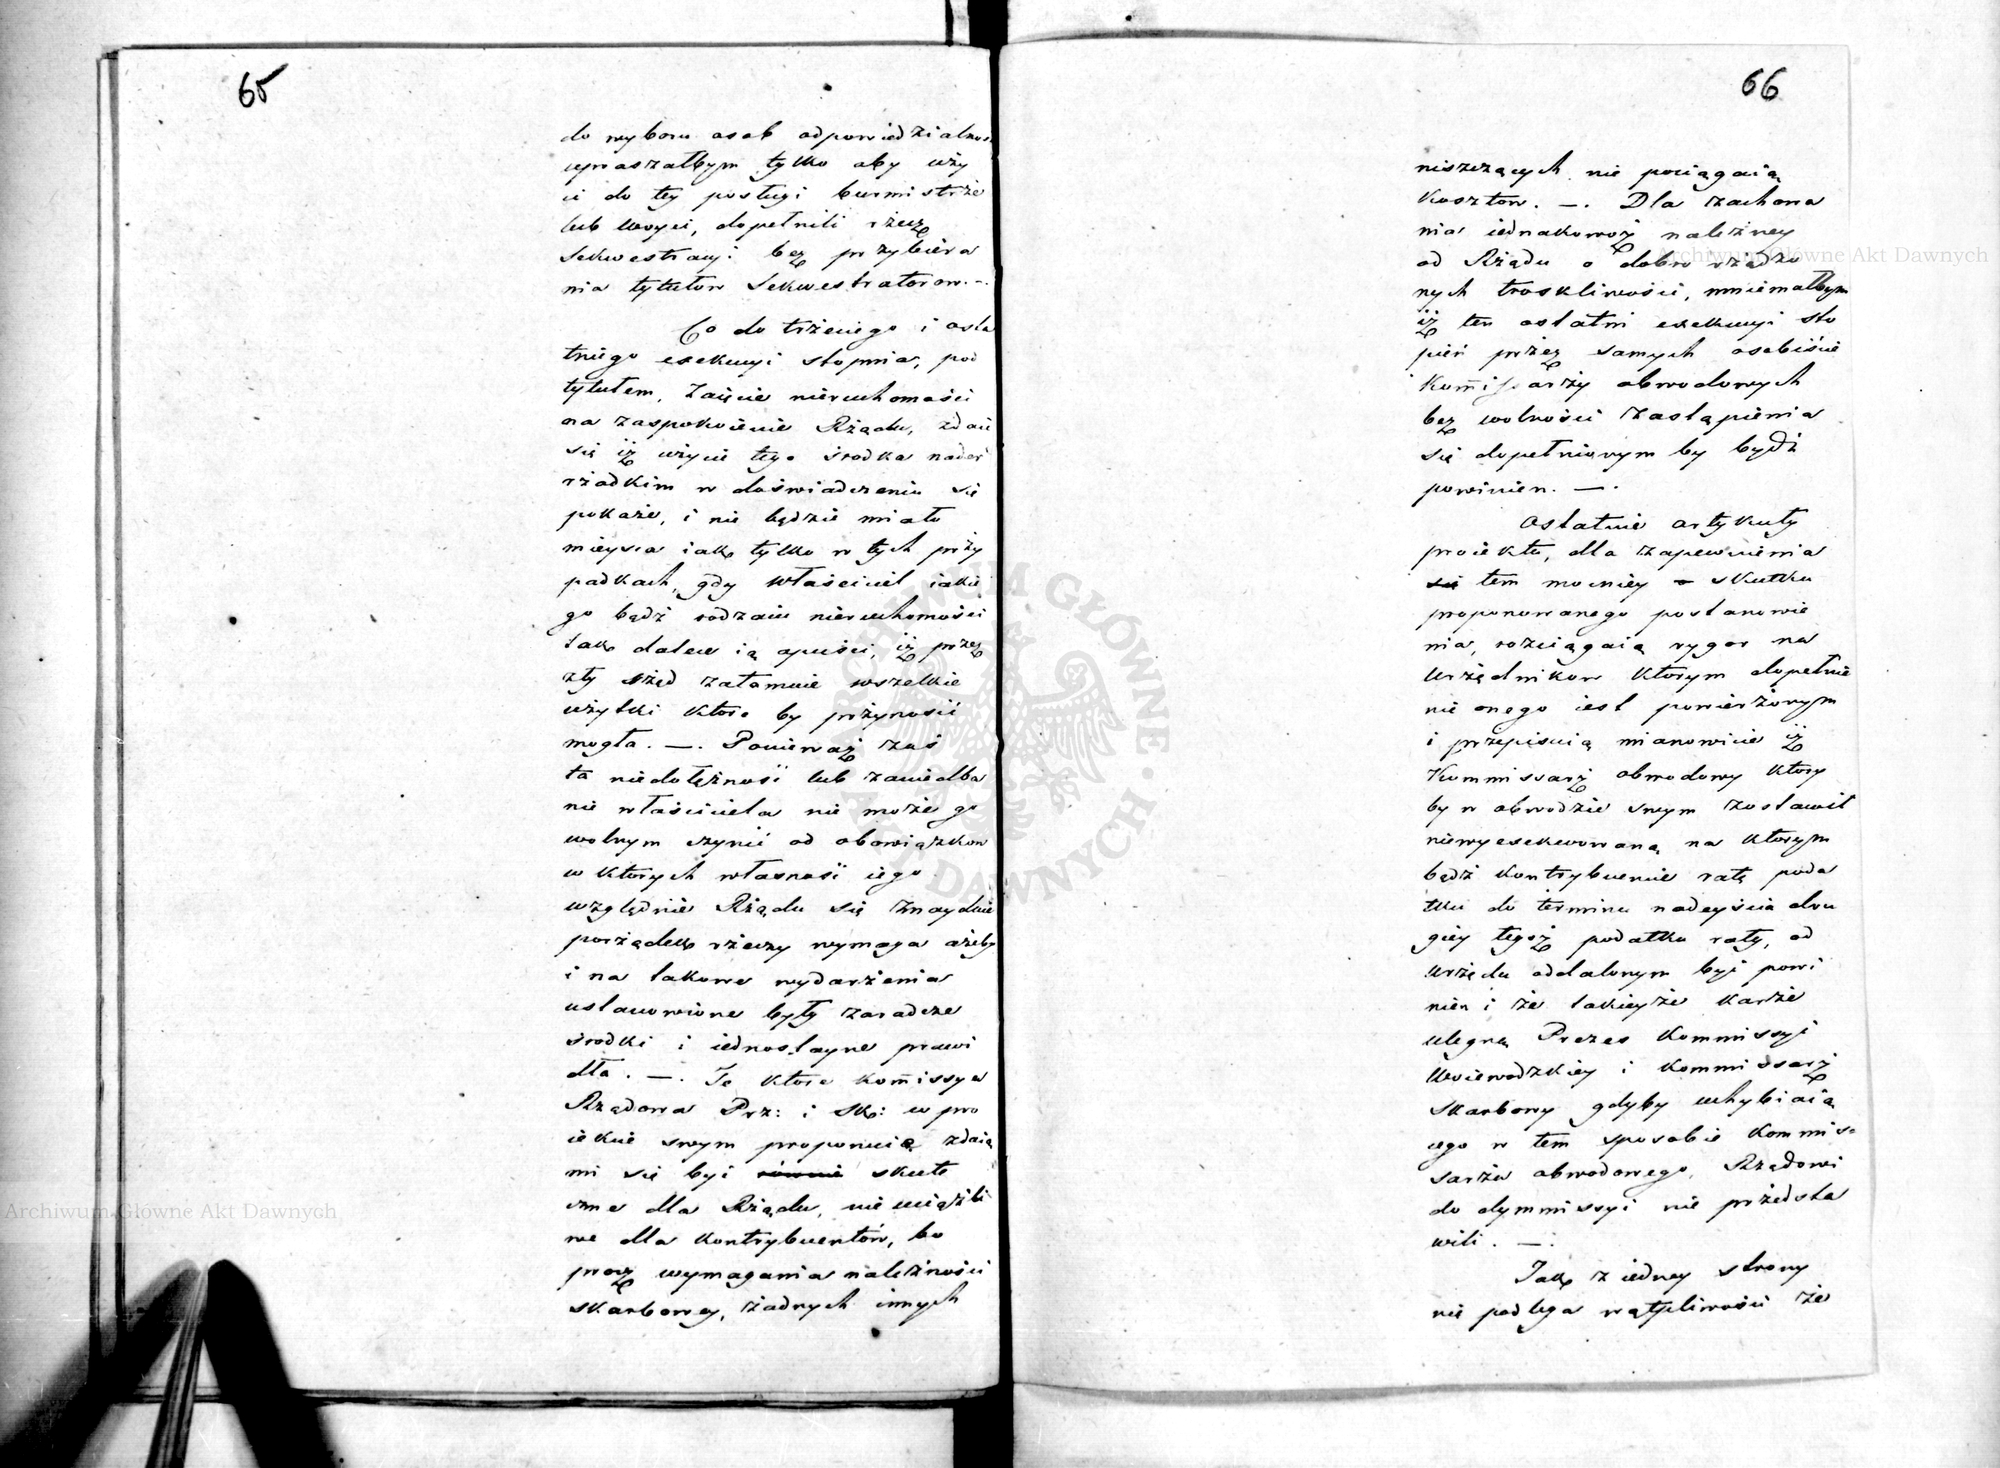 65
do wyboru osob odpowiedzialnos.
upraszałbym tylko aby uży
ci do tey posługi burmistrze
lub woyci, dopełnili rzeczę
Sekwestracyi bez przybiera
nia tytułow Sekwestratorow. —.
Co do trzeciego i osta
tniego exekucyi stopnia, pod
tytułem, Zaięcie nieruchomości
na zaspokoienie Rządu, zdaie
się iż użycie tego środka nader
rzadkim w doświadczeniu się
pokaże, i nie będzie miało
mieysca iak tylko w tych przy
padkach, gdy właściciel iakie
go bądź rodzaiu nieruchomości
tak dalece ią opuści, iż przez
zły rząd załamuie wszelkie
użytki ktore by przynosić
mogła. —. Ponieważ zaś
ta niedołężność lub zaniedba
nie właściciela nie może go
wolnym czynić od obowiązkow
w ktorych własność iego
względnie Rządu się znayduie
porządek rzeczy wymaga ażeby
i na takowe wydarzenia
ustanowione były zaradcze
środki i iednostayne prawi
dła. —. Te ktore Kom̄issya
Rządowa Prz: i Sk: w pro
iekcie swym proponuią zdaią
mi się być rownie skute
czne dla Rządu, nie uciążli
we dla kontrybuentów, bo
procz wymagania należności
skarbowey, żadnych innych
66
niszczących nie pociągaią
kosztow. —. Dla zachowa
nia iednakowoż należney
od Rządu o dobro rządzo
nych troskliwości, mniemałbym
iż ten ostatni exekucyi sto
pień przez samych osobiście
Kom̄issarzy obwodowych
bez wolności zastąpienia
się dopełnionym by bydź
powinien. —.
Ostatnie artykuły
proiektu, dla zapewnienia
się tem mocniey o skutku
proponowanego postanowie
nia, rozciągaią rygor na
Urzędnikow ktorym dopełnie
nie onego iest powierzonym
i przepisuią mianowicie iż
Kommissarz obwodowy ktory
by w obwodzie swym zostawił
niewyexekwowaną na ktorym
bądź kontrybuencie ratę poda
tku do terminu nadeyścia dru
giey tegoż podatku raty, od
urzędu oddalonym być powi
nien i że takieyże karze
ulegną Prezes Kommissyi
Woiewodzkiey i Kommissarz
Skarbowy gdyby uchybiaią
cego w tem sposobie Kommis-
sarza obwodowego, Rządowi
do dymmissyi nie przedsta
wili. —.
Jak z iedney strony
nie podlega wątpliwości że
Archiwum Główne Akt Dawnych
Archiwum Główne Akt Dawnych
ARCHIWUM GŁÓWNE AKT DAWNYCH